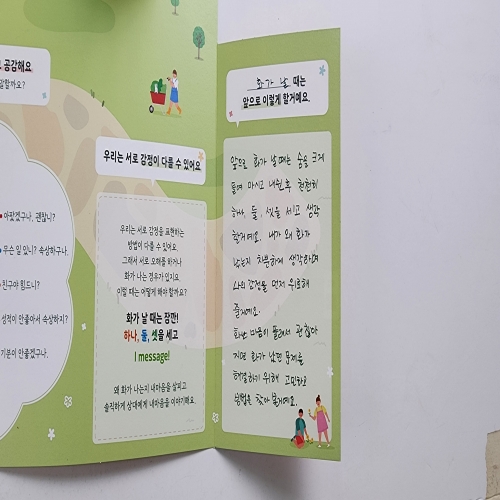 공감해요
말할까요?
아팠겠구나. 괜찮니?
무슨 일 있니? 속상하구나.
친구야 힘드니?
성적이 안좋아서 속상하지?
기분이 안좋겠구나.
우리는 서로 감정이 다를 수 있어요
우리는 서로 감정을 표현하는
방법이 다를 수 있어요.
그래서 서로 오해를 하거나
화가 나는 경우가 있지요
이럴 때는 어떻게 해야 할까요?
화가 날 때는 잠깐!
하나, 둘, 셋을 세고
I message!
왜 화가 나는지 내마음을 살피고
솔직하게 상대에게 내마음을 이야기해요.
화가 날 때는
앞으로 이렇게 할거예요.
앞으로 화가 날때는 숨을 크게
들여 마시고 내쉰 후 천천히
하나, 둘, 셋을 세고 생각
할거예요. 내가 왜 화가
났는지 차분하게 생각하며
나의 감정을 먼저 위로해
줄게요.
화난 마음이 풀려서 괜찮다
지면 화가 났던 문제를
해결하기 위해 고민하고
방법을 찾아 볼거예요.